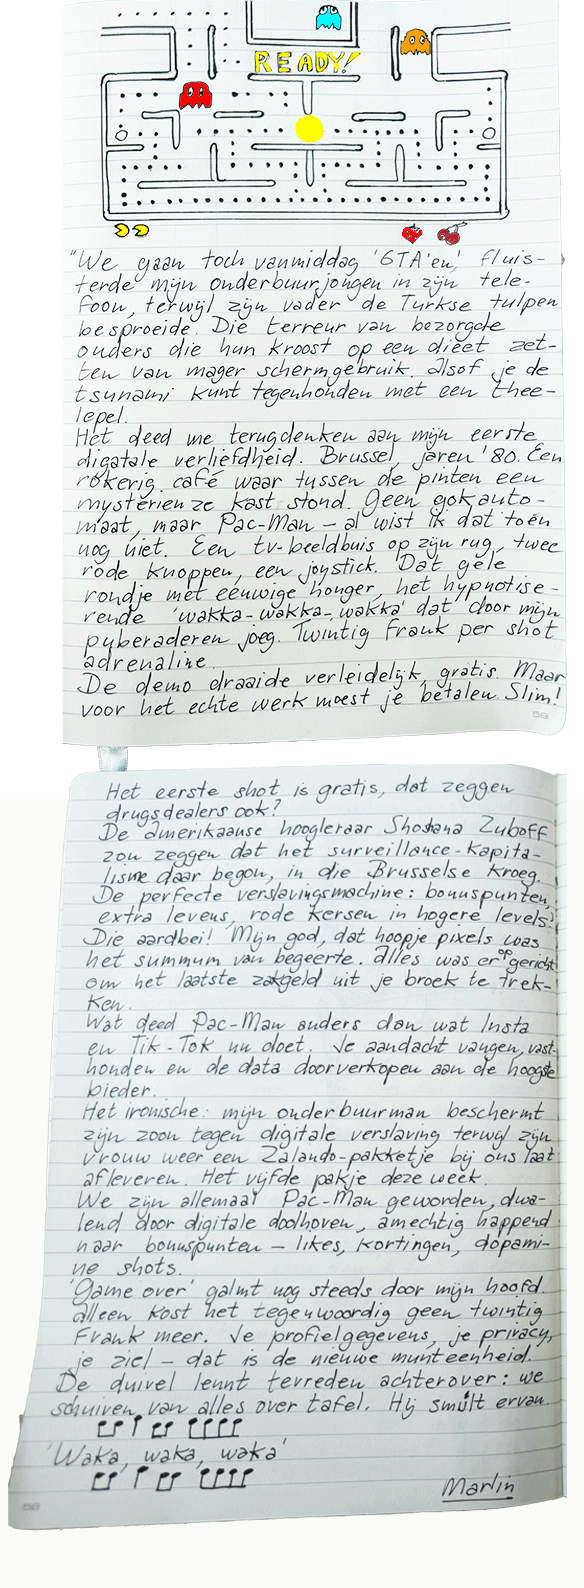 READY!
"We gaan toch vanmiddag 'GTA'en', fluis-
terde mijn onderbuurjongen in zijn tele-
foon, terwijl zijn vader de Turkse tulpen
besproeide. Die terreur van bezorgde
ouders die hun kroost op een dieet zet-
ten van mager schermgebruik. Alsof je de
tsunami kunt tegenhouden met een thee-
lepel.
Het deed me terugdenken aan mijn eerste
digatale verliefdheid. Brussel, jaren '80. Een
rokerig café waar tussen de pinten een
mysterieuze kast stond. Geen gokauto-
maat, maar Pac-Man – al wist ik dat toen
nog niet. Een tv-beeldbuis op zijn rug, twee
rode knoppen, een joystick. Dat gele
rondje met eeuwige honger, het hypnotise-
rende 'wakka-wakka-wakka' dat door mijn
puberaderen joeg. Twintig frank per shot
adrenaline.
De demo draaide verleidelijk, gratis. Maar
voor het echte werk moest je betalen. Slim!
58
Het eerste shot is gratis, dat zeggen
drugsdealers ook?
De Amerikaanse hoogleraar Shoshana Zuboff
zou zeggen dat het surveillance-kapita-
lisme daar begon, in die Brusselse kroeg.
De perfecte verslavingsmachine: bonuspunten,
extra levens, rode kersen in hogere levels?
Die aardbei! Mijn god, dat hoopje pixels was
het summum van begeerte. Alles was er op gericht
om het laatste zakgeld uit je broek te trek-
ken.
Wat deed Pac-Man anders dan wat Insta
en Tik-Tok nu doet. Je aandacht vangen, vast-
houden en de data doorverkopen aan de hoogste
bieder.
Het ironische: mijn onderbuurman beschermt
zijn zoon tegen digitale verslaving terwijl zijn
vrouw weer een Zalando-pakketje bij ons laat
afleveren. Het vijfde pakje deze week.
We zijn allemaal Pac-Man geworden, dwa-
lend door digitale doolhoven, amechtig happend
naar bonuspunten – likes, kortingen, dopami-
ne shots.
'Game over' galmt nog steeds door mijn hoofd.
alleen kost het tegenwoordig geen twintig
Frank meer. Je profielgegevens, je privacy,
je ziel – dat is de nieuwe munteenheid.
De duivel leunt tevreden achterover: we
schuiven van alles over tafel. Hij smult ervan.
'Waka, waka, waka'
Marlin